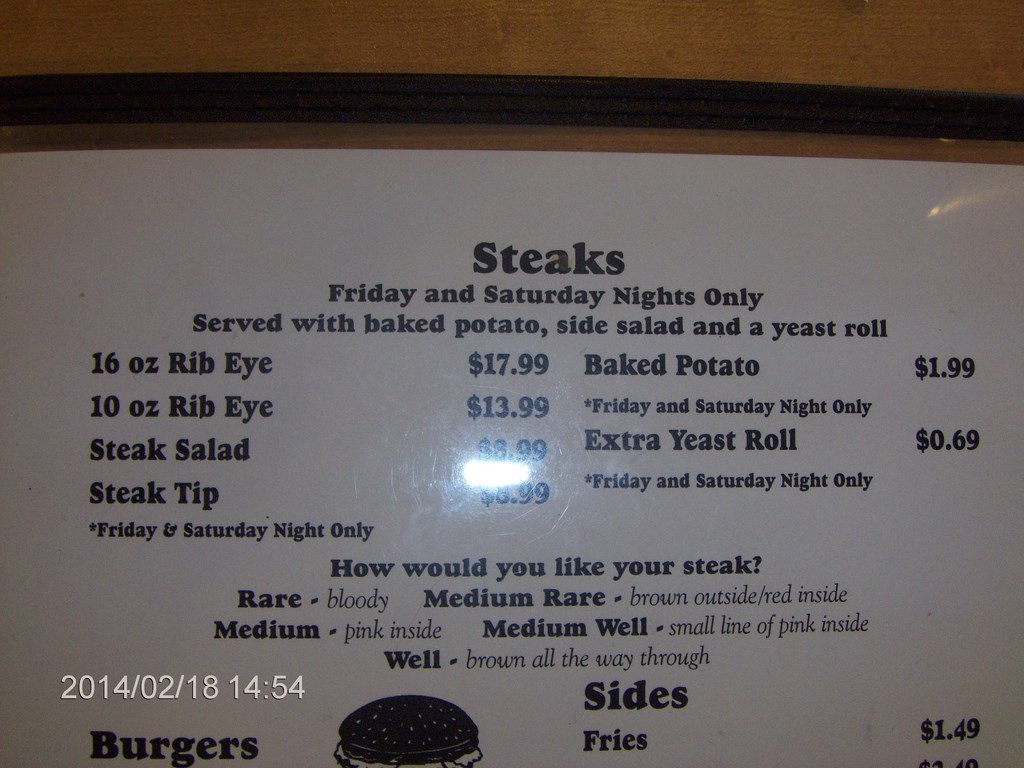 Steaks
Friday and Saturday Nights Only
Served with baked potato, side salad and a yeast roll
16 oz Rib Eye $17.99
10 oz Rib Eye $13.99
Steak Salad
Steak Tip
*Friday & Saturday Night Only
Baked Potato $1.99
*Friday and Saturday Night Only
Extra Yeast Roll $0.69
*Friday and Saturday Night Only
How would you like your steak?
Rare - bloody Medium Rare - brown outside/red inside
Medium - pink inside Medium Well - small line of pink inside
Well - brown all the way through
2014/02/18 14:54
Burgers
Sides
Fries $1.49